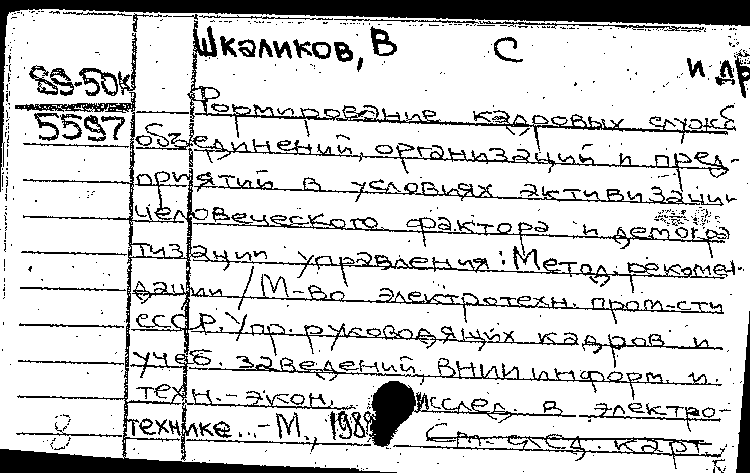 Шкаликов, В С и др
89-50к
5597
Формирование кадровых служб
объединений, организаций и пред-
приятий в условиях активизации
человеческого фактора и демокра
тизации управления: Метод. рекомен-
дации / М-во электротехн. пром-сти
СССР. Упр. руководящих кадров и
учеб. заведений, ВНИИ информ. и
техн.-экон. исслед. в электро-
технике. -М., 1988
См. след. карт.
8